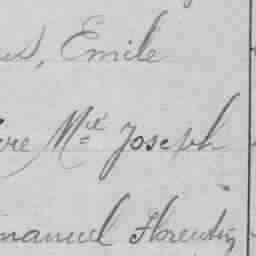 us, Emile
re Mel Joseph
manuel Florentin